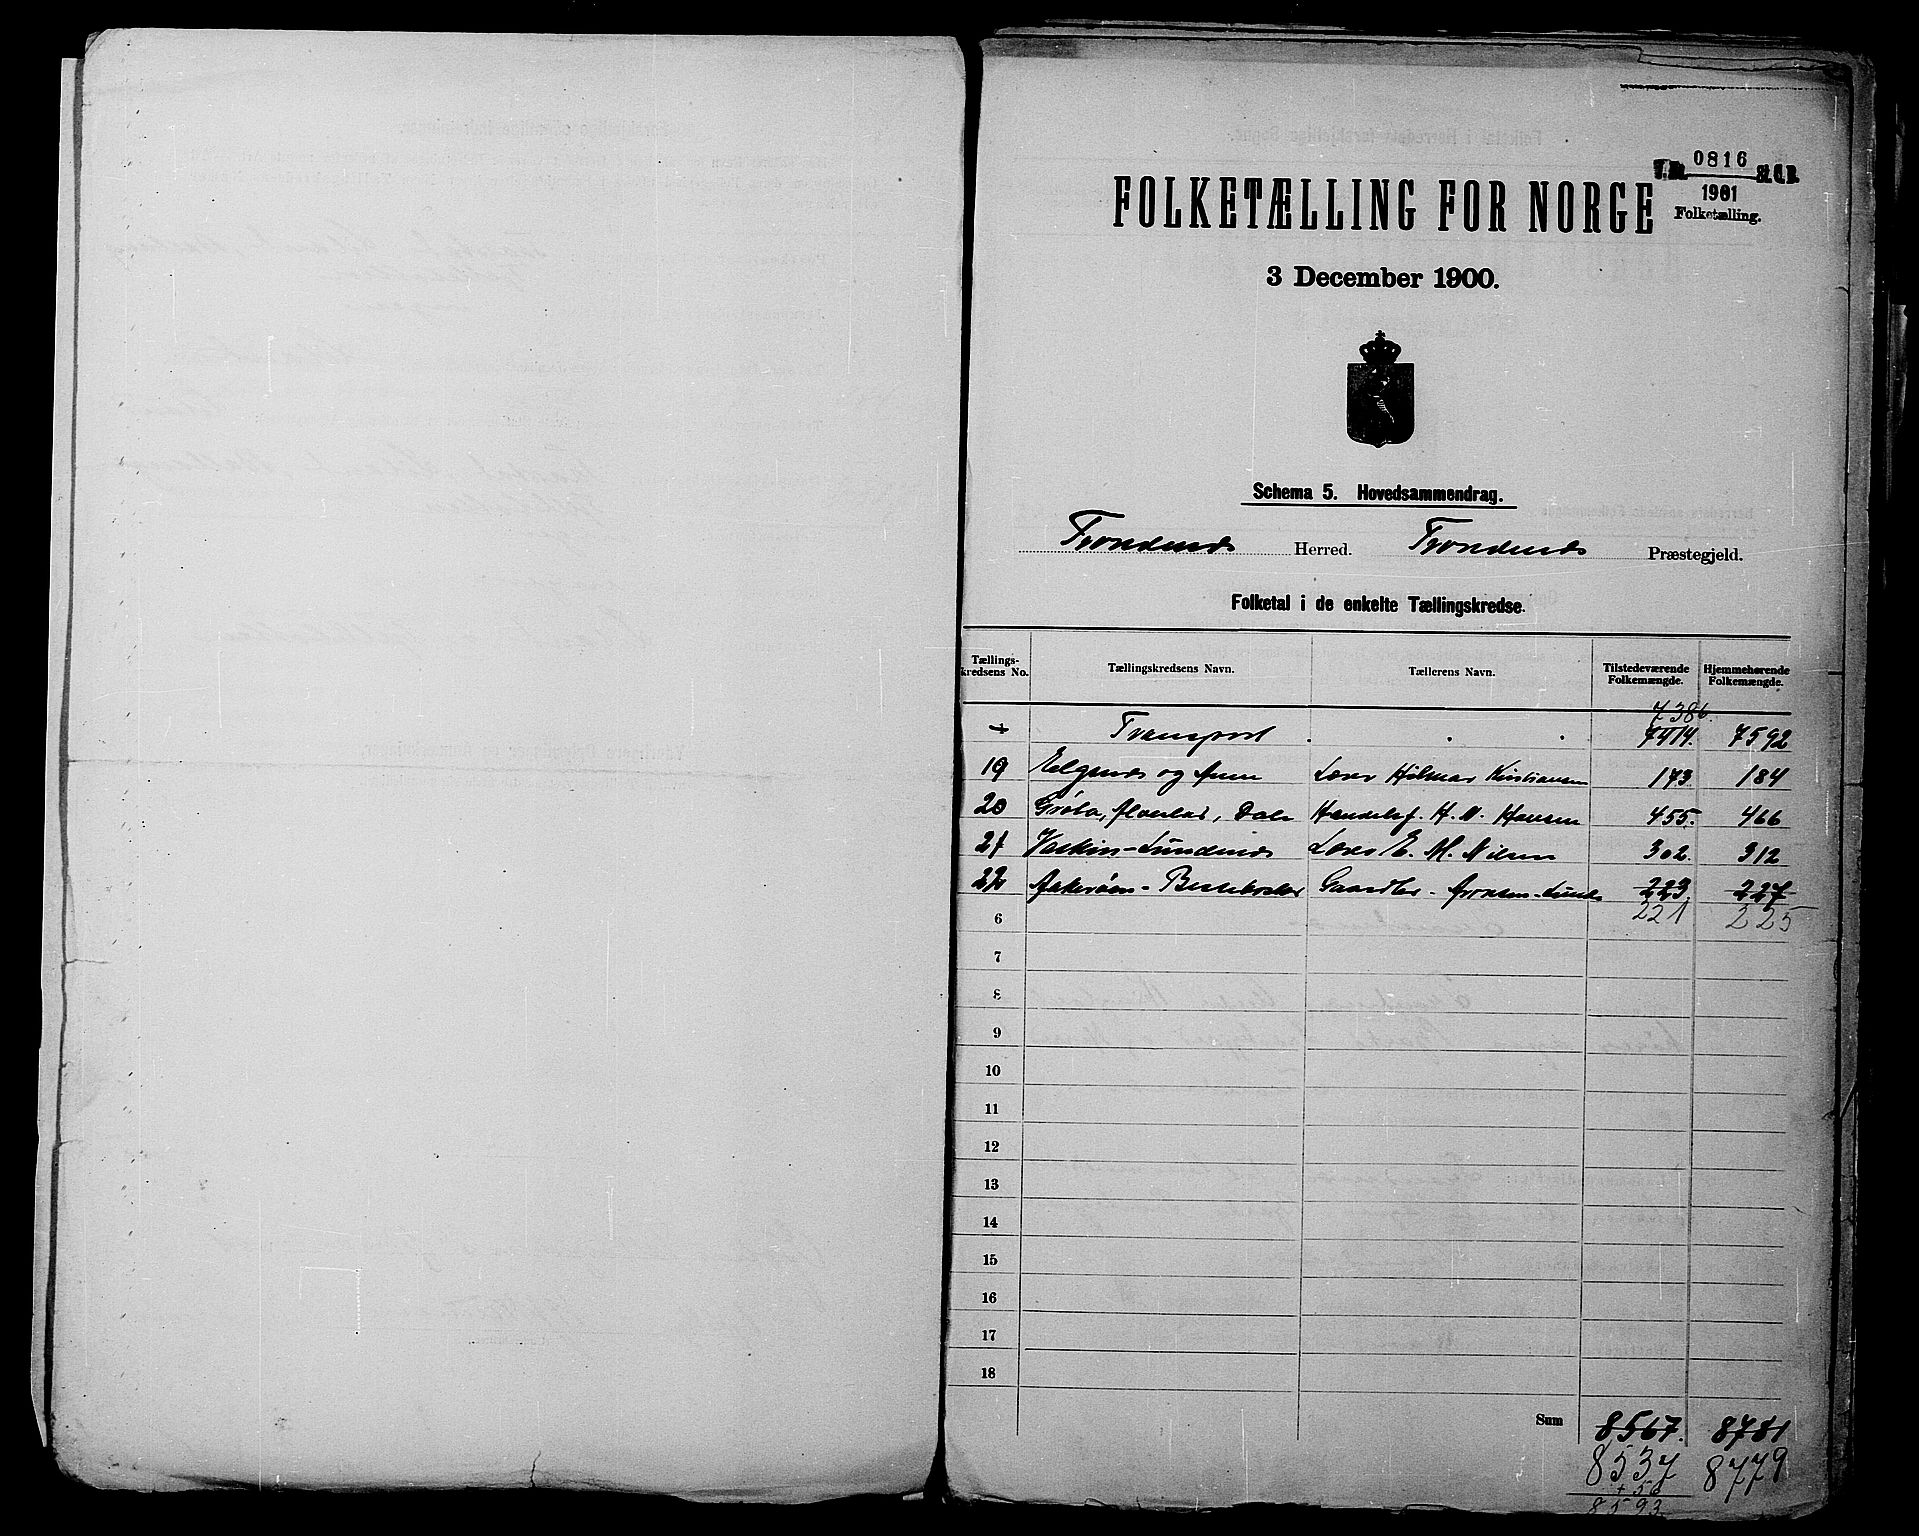 0816
1901
Folketælling.
FOLKETÆLLING FOR NORGE
3 December 1900.
Schema 5. Hovedsammendrag.
Trondenæs Herred. Trondenæs Præstegjeld.
Folketal i de enkelte Tællingskredse.
Tællings-kredsens No. Tællingskredsens Navn. Tællerens Navn. Tilstedeværende Folkemængde. Hjemmehørende Folkemængde.
7386.
Transport . . . 7414. 7592
19 Elgenæs og Lærer Hilmar Kristiansen 173. 184
20 Grøbo, Dale Handelsf. H. M. Hansen 455. 466
21 Lærer E. M. Nilsen 302. 312
22 Gaardbr. 223 227
6 221 225
7
8
9
10
11
12
13
14
15
16
17
18
Sum 8567. 8781
8537 8779
+ 56
8593